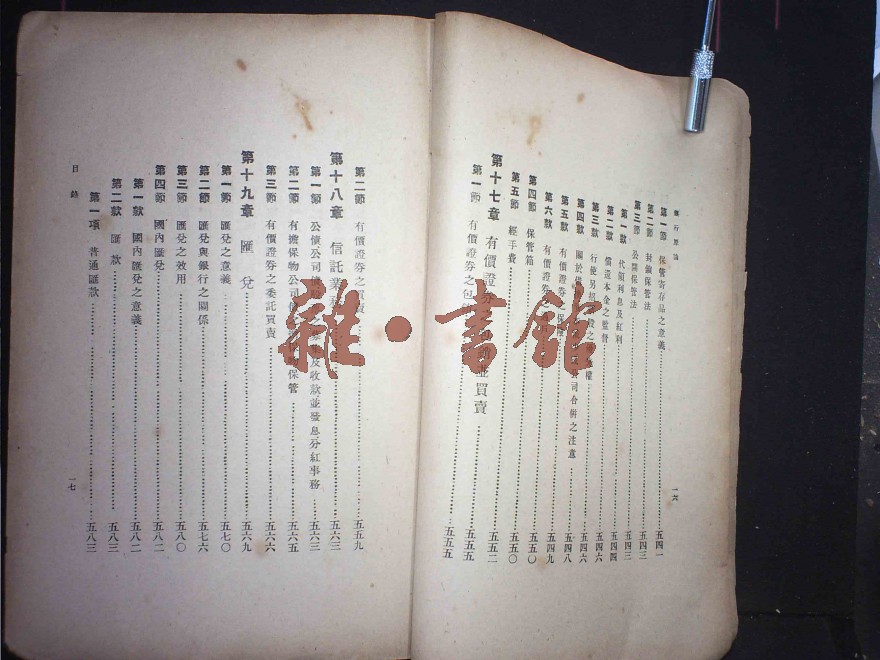 銀行原論
第一節 保管寄存品之意義 五四一
第二節 封鎖保管法 五四三
第三節 公開保管法 五四三
第一款 代領利息及紅利 五四四
第二款 償還本金之監督 五四六
第三款 行使另招 股之 權 五四六
第四款 關於 公司合併之注意
第五款 有價證券 保 五四八
第六款 有價證券 五四九
第四節 保管箱 五五〇
第五節 經手費 五五〇
第十七章 有價證券 並買賣 五五二
第一節 有價證券之包 五五五
一六
第二節 有價證券之買賣 五五九
第十八章 信託業務 五六三
第一節 公債公司債 之 及收款並發息分紅事務 五六三
第二節 有擔保物公司 保管 五六五
第三節 有價證券之委託買賣 五六六
第十九章 匯兌 五六九
第一節 匯兌之意義 五七〇
第二節 匯兌與銀行之關係 五七六
第三節 匯兌之效用 五八〇
第四節 國內匯兌 五八二
第一款 國內匯兌之意義 五八二
第二款 匯款 五八三
第一項 普通匯款 五八三
目錄
一七
雜·書館